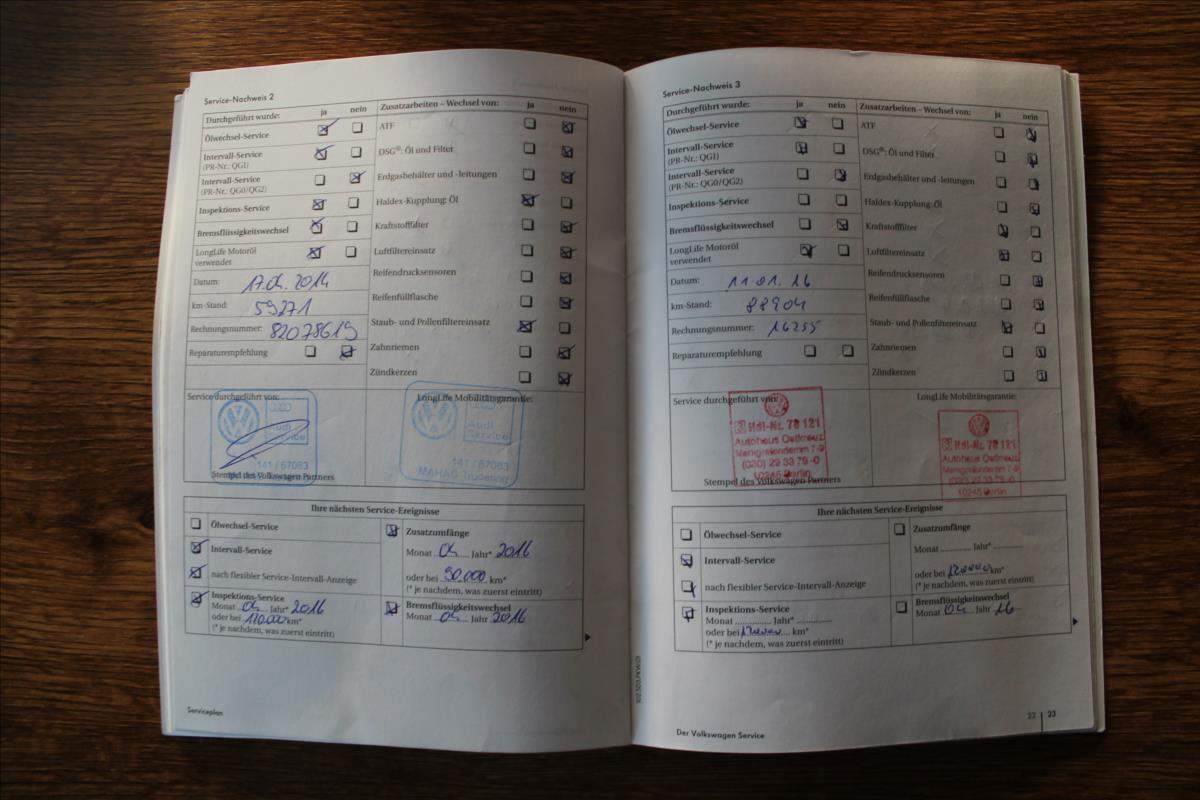 Service-Nachweis 2
Durchgeführt wurde: ja nein
Ölwechsel-Service
Intervall-Service
(PR-Nr.: QG1)
Intervall-Service
(PR-Nr.: QG0/QG2)
Inspektions-Service
Bremsflüssigkeitswechsel
LongLife Motoröl
verwendet
Datum: 17.04.2014
km-Stand: 59271
Rechnungsnummer: 82078619
Reparaturempfehlung
Zusatzarbeiten – Wechsel von: ja nein
ATF
DSG®: Öl und Filter
Erdgasbehälter und -leitungen
Haldex-Kupplung: Öl
Kraftstofffilter
Luftfiltereinsatz
Reifendrucksensoren
Reifenfüllflasche
Staub- und Pollenfiltereinsatz
Zahnriemen
Zündkerzen
Service durchgeführt von:
Audi
Service
141 / 67083
Stempel des Volkswagen Partners
LongLife Mobilitätsgarantie:
Audi
Service
141 / 67083
MAHAG
Ihre nächsten Service-Ereignisse
Ölwechsel-Service
Intervall-Service
nach flexibler Service-Intervall-Anzeige
Inspektions-Service
Monat 04 Jahr* 2016
oder bei 120.000 km*
(* je nachdem, was zuerst eintritt)
Zusatzumfänge
Monat 04 Jahr* 2016
oder bei 90.000 km*
(* je nachdem, was zuerst eintritt)
Bremsflüssigkeitswechsel
Monat 04 Jahr 2016
Serviceplan
Service-Nachweis 3
Durchgeführt wurde: ja nein
Ölwechsel-Service
Intervall-Service
(PR-Nr.: QG1)
Intervall-Service
(PR-Nr.: QG0/QG2)
Inspektions-Service
Bremsflüssigkeitswechsel
LongLife Motoröl
verwendet
Datum: 11.01.16
km-Stand: 88904
Rechnungsnummer: 16255
Reparaturempfehlung
Zusatzarbeiten – Wechsel von: ja nein
ATF
DSG®: Öl und Filter
Erdgasbehälter und -leitungen
Haldex-Kupplung: Öl
Kraftstofffilter
Luftfiltereinsatz
Reifendrucksensoren
Reifenfüllflasche
Staub- und Pollenfiltereinsatz
Zahnriemen
Zündkerzen
Service durchgeführt von:
Hdl-Nr. 78 121
Autohaus Ostkreuz
(030) 29 33 79 -0
10245 Berlin
Stempel des Volkswagen Partners
LongLife Mobilitätsgarantie:
Hdl-Nr. 78 121
Autohaus Ostkreuz
(030) 29 33 79 -0
10245 Berlin
Ihre nächsten Service-Ereignisse
Ölwechsel-Service
Intervall-Service
nach flexibler Service-Intervall-Anzeige
Inspektions-Service
Monat Jahr*
oder bei 120000 km*
(* je nachdem, was zuerst eintritt)
Zusatzumfänge
Monat Jahr*
oder bei 120000 km*
(* je nachdem, was zuerst eintritt)
Bremsflüssigkeitswechsel
Monat 04 Jahr 16
Der Volkswagen Service
22 | 23